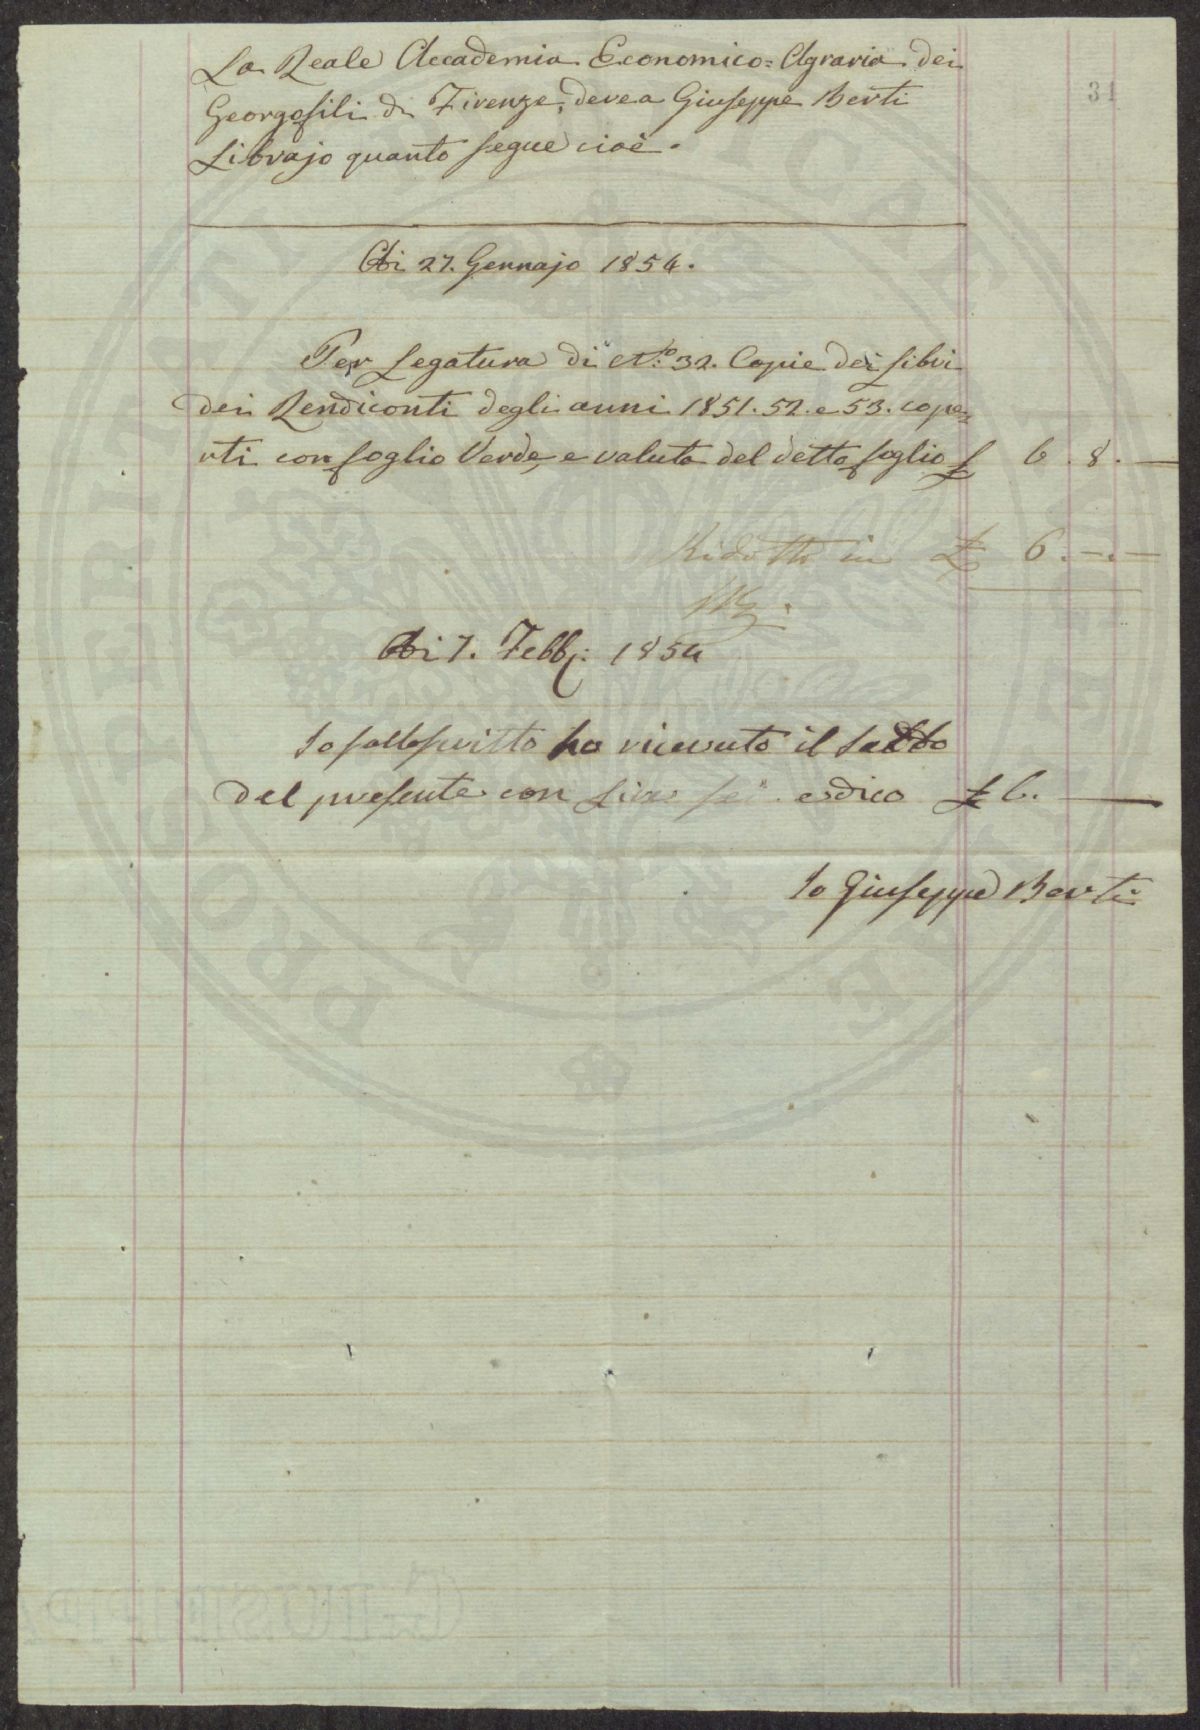 31
La Reale Accademia Economico=Agraria dei
Georgofili di Firenze, deve a Giuseppe Berti
Librajo quanto segue cioè.
Adi 27. Gennajo 1854.
Per Legatura di N.o 32. Copie dei Libri
dei Rendiconti degli anni 1851. 52. e 53. cope=
rti con foglio Verde, e valuta del detto foglio £ 6. 8. —
Ridotto in £ 6. —. —
Adi 7. Febb: 1854
Io sottoscritto ho ricevuto il saldo
del presente con Lire sei edico £ 6. —
Io Giuseppe Berti